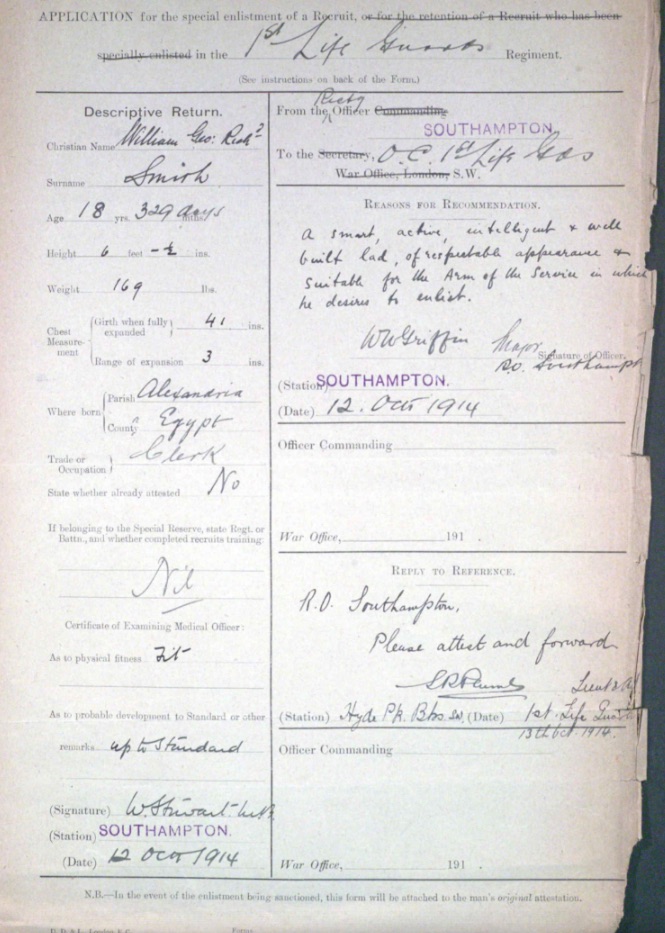 APPLICATION for the special enlistment of a Recruit, or for the retention of a Recruit who has been
specially enlisted in the 1st Life Guards Regiment.
(See instructions on back of the Form.)
Descriptive Return.
Christian Name William Geo: Rich?
Surname Smith
Age 18 yrs. 329 days
Height 6 feet -½ ins.
Weight 169 lbs.
Chest Measurement
Girth when fully expanded 41 ins.
Range of expansion 3 ins.
Where born
Parish Alexandria
County Egypt
Trade or Occupation Clerk
State whether already attested No
If belonging to the Special Reserve, state Regt. or
Battn., and whether completed recruits training:
Nil
Certificate of Examining Medical Officer:
As to physical fitness Fit
As to probable development to Standard or other
remarks up to Standard
(Signature) W. Stewart
(Station) SOUTHAMPTON.
(Date) 12 Oct 1914
From the Rectg Officer Commanding
SOUTHAMPTON
To the Secretary, O.C. 1st Life Gds
War Office, London, S.W.
REASONS FOR RECOMMENDATION.
A smart, active, intelligent & well
built lad, of respectable appearance &
suitable for the Arm of the Service in which
he desires to enlist.
WW Griffin Major
Signature of Officer.
R.O. Southampt
(Station) SOUTHAMPTON.
(Date) 12. Oct 1914
Officer Commanding
War Office, 191 .
REPLY TO REFERENCE.
R.O. Southampton,
Please attest and forward
Lieut &
(Station) Hyde Pk. Bks SW. (Date) 1st. Life Guards
13th Oct. 1914.
Officer Commanding
War Office, 191 .
N.B.—In the event of the enlistment being sanctioned, this form will be attached to the man's original attestation.